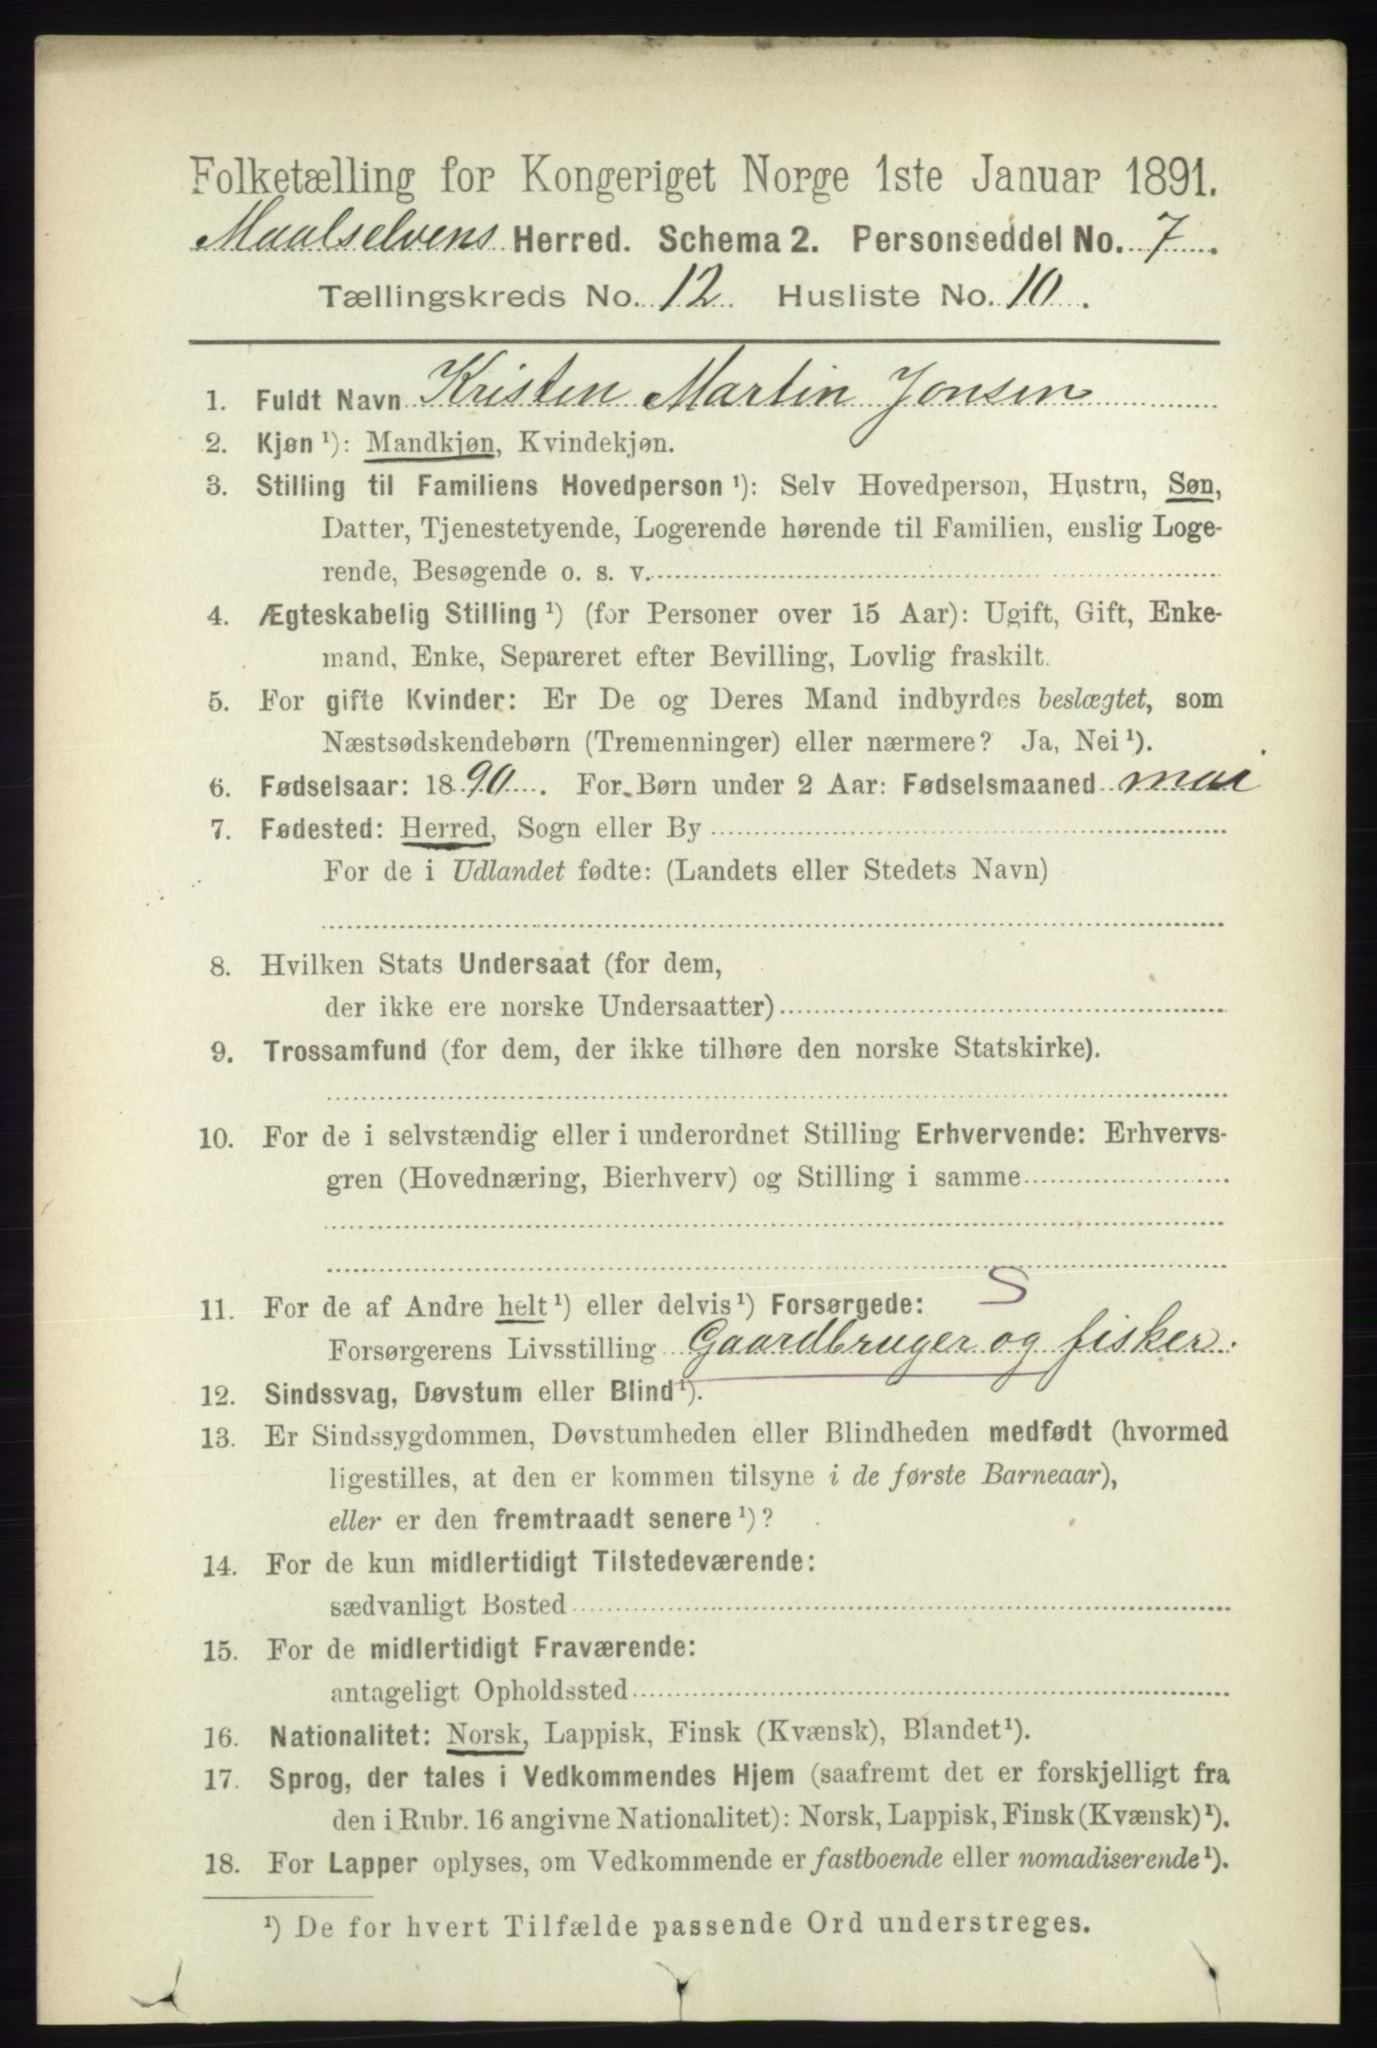 Folketælling for Kongeriget Norge 1ste Januar 1891.
Maalselvens Herred. Schema 2. Personseddel No. 7.
Tællingskreds No. 12 Husliste No. 10.
1. Fuldt Navn Kristen Martin Jonsen
2. Kjøn ¹): Mandkjøn, Kvindekjøn.
3. Stilling til Familiens Hovedperson ¹): Selv Hovedperson, Hustru, Søn,
Datter, Tjenestetyende, Logerende hørende til Familien, enslig Loge-
rende, Besøgende o. s. v.
4. Ægteskabelig Stilling ¹) (for Personer over 15 Aar): Ugift, Gift, Enke-
mand, Enke, Separeret efter Bevilling, Lovlig fraskilt.
5. For gifte Kvinder: Er De og Deres Mand indbyrdes beslægtet, som
Næstsødskendebørn (Tremenninger) eller nærmere? Ja, Nei ¹).
6. Fødselsaar: 1890. For Børn under 2 Aar: Fødselsmaaned mai
7. Fødested: Herred, Sogn eller By
For de i Udlandet fødte: (Landets eller Stedets Navn)
8. Hvilken Stats Undersaat (for dem,
der ikke ere norske Undersaatter)
9. Trossamfund (for dem, der ikke tilhøre den norske Statskirke).
10. For de i selvstændig eller i underordnet Stilling Erhvervende: Erhvervs-
gren (Hovednæring, Bierhverv) og Stilling i samme
S
11. For de af Andre helt ¹) eller delvis ¹) Forsørgede:
Forsørgerens Livsstilling Gaardbruger og fisker.
12. Sindssvag, Døvstum eller Blind ¹).
13. Er Sindssygdommen, Døvstumheden eller Blindheden medfødt (hvormed
ligestilles, at den er kommen tilsyne i de første Barneaar),
eller er den fremtraadt senere ¹)?
14. For de kun midlertidigt Tilstedeværende:
sædvanligt Bosted
15. For de midlertidigt Fraværende:
antageligt Opholdssted
16. Nationalitet: Norsk, Lappisk, Finsk (Kvænsk), Blandet ¹).
17. Sprog, der tales i Vedkommendes Hjem (saafremt det er forskjelligt fra
den i Rubr. 16 angivne Nationalitet): Norsk, Lappisk, Finsk (Kvænsk) ¹).
18. For Lapper oplyses, om Vedkommende er fastboende eller nomadiserende ¹).
¹) De for hvert Tilfælde passende Ord understreges.